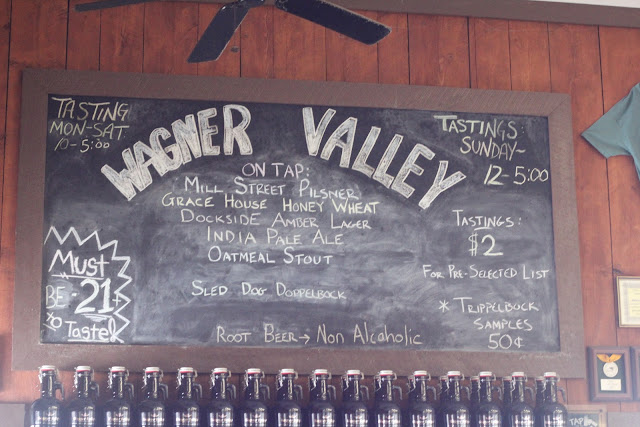 TASTING
MON-SAT
10-5:00
WAGNER VALLEY
TASTINGS:
SUNDAY~
12-5:00
ON TAP:
MILL STREET PILSNER
GRACE HOUSE HONEY WHEAT
DOCKSIDE AMBER LAGER
INDIA PALE ALE
OATMEAL STOUT
SLED DOG DOPPELBOCK
ROOT BEER → NON ALCOHOLIC
TASTINGS:
$2
FOR PRE-SELECTED LIST
* TRIPPELBOCK
SAMPLES
50¢
MUST
BE - 21+
to Taste!